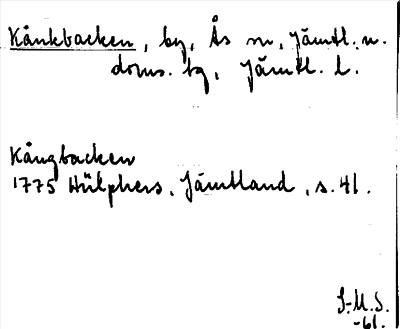 Kånkbacken, by, Ås sn, Jämtl. n.
doms. tg, Jämtl. l.
Kångbacken
1775 Hülphers, Jämtland, s. 41.
S.M.S.
-61.